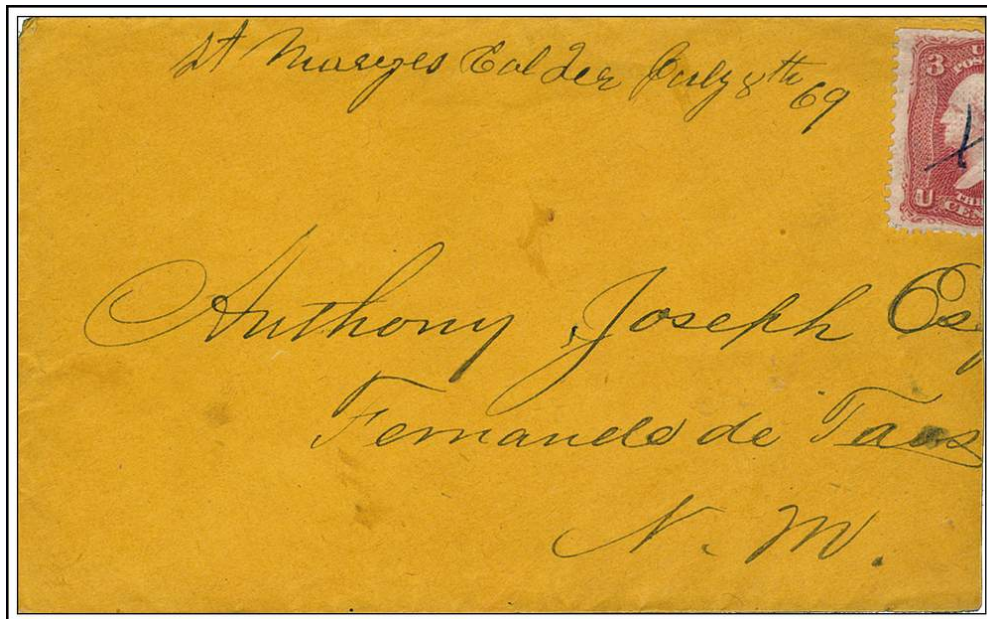 St Maryes Col Ter July 8th 69
3
U
POS
U
CEN
Anthony Joseph Es
Fernando de Taos
N. M.